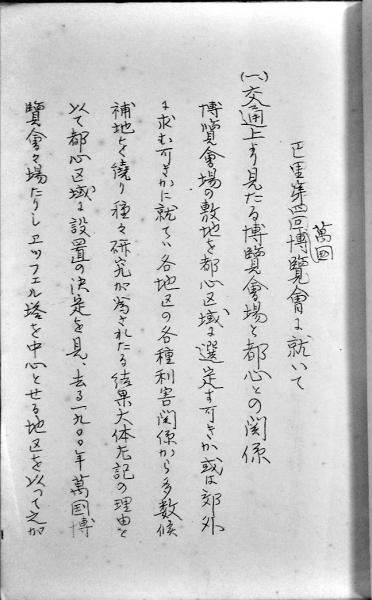 巴里萬国博覧會に就いて
(一)交通上より見たる博覽會場と都心との関係
博覽會場の敷地を都心区域に選定す可きか或は郊外
に求む可きかに就ては各地区の各種利害関係から多数候
補地を繞り種々研究が為されたる結果大体左記の理由を
以て都心区域に設置の決定を見、去る一九〇〇年萬国博
覽會々場たりしエッフェル塔を中心とせる地区を以って之が